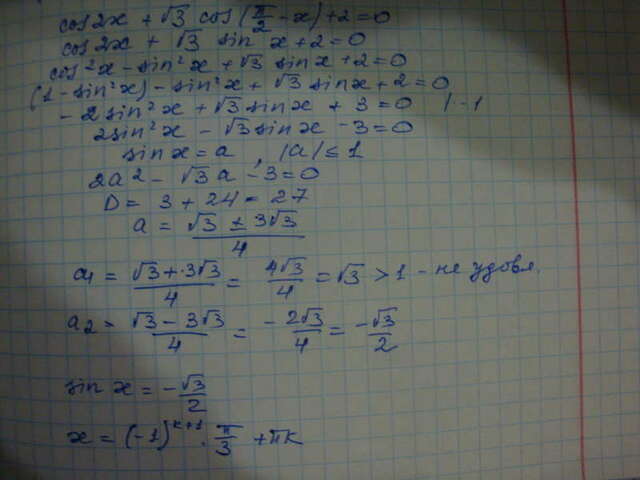 cos2x + √3 cos(π/2 - x) + 2 = 0
cos2x + √3 sin x + 2 = 0
cos²x - sin²x + √3 sinx + 2 = 0
(1 - sin²x) - sin²x + √3 sinx + 2 = 0
- 2sin²x + √3 sinx + 3 = 0 | · -1
2sin²x - √3 sinx - 3 = 0
sin x = a , |a| ≤ 1
2a² - √3 a - 3 = 0
D = 3 + 24 = 27
a = (√3 ± 3√3)/4
a₁ = (√3 + 3√3)/4 = 4√3/4 = √3 > 1 - не удовл.
a₂ = (√3 - 3√3)/4 = -2√3/4 = -√3/2
sin x = -√3/2
x = (-1)^(k+1) · π/3 + πk